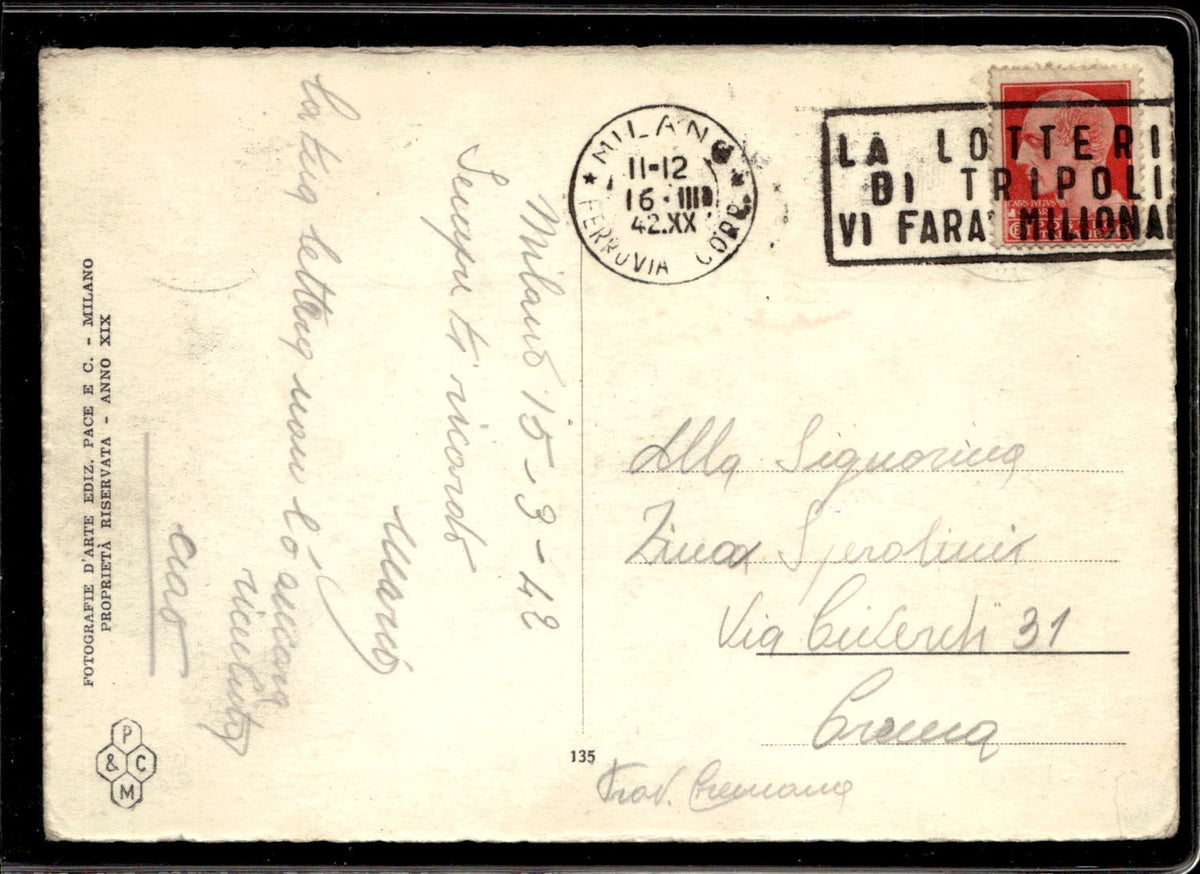 MILANO
11-12
16·III
42.XX
FERROVIA CORR.
LA LOTTERI
DI TRIPOLI
VI FARA' MILIONAR
CAIVS IVLIVS
Milano 15-3-42
Sempre ti ricordo
Mario
La tua lettera non l'ò ancora
ricevuta
ciao
Alla Signorina
Zina
Via 31
Crema
Prov. Cremona
135
FOTOGRAFIE D'ARTE EDIZ. PACE E C. - MILANO
PROPRIETÀ RISERVATA - ANNO XIX
P
& C
M